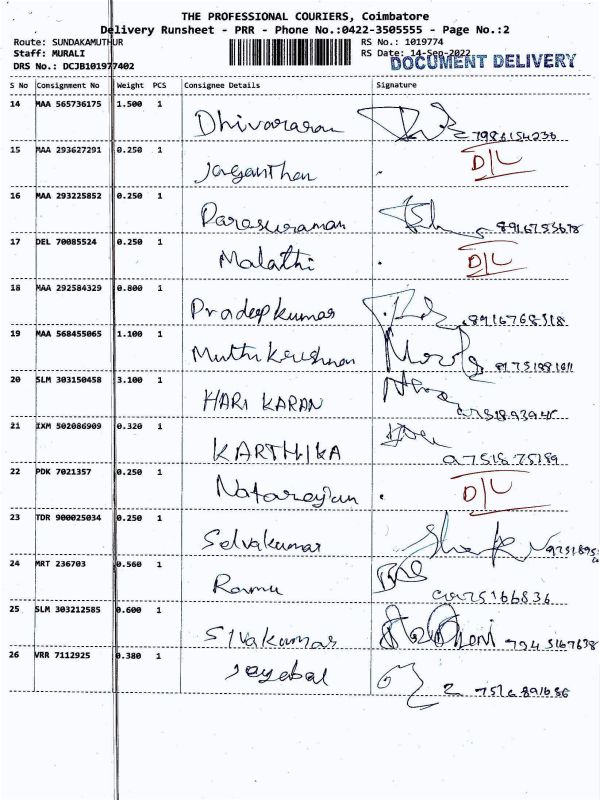 THE PROFESSIONAL COURIERS, Coimbatore
Delivery Runsheet - PRR - Phone No.:0422-3505555 - Page No.:2
Route: SUNDAKAMUTHUR RS No.: 1019774
Staff: MURALI RS Date: 14-Sep-2022 DOCUMENT DELIVERY
DRS No.: DCJB101977402
S No Consignment No Weight PCS Consignee Details Signature
14 MAA 565736175 1.500 1 Dhivararan 7986154236
15 MAA 293627291 0.250 1 Jaganthan D/L
16 MAA 293225852 0.250 1 Parasuraman 8916753678
17 DEL 70085524 0.250 1 Malathi D/L
18 MAA 292584329 0.800 1 Pradeep kumar 8916768318
19 MAA 568455065 1.100 1 Muthu Krishnan
20 SLM 303150458 3.100 1 HARI KARAN
21 IXM 502086909 0.320 1 KARTHIKA
22 PDK 7021357 0.250 1 Natarajan D/L
23 TDR 900025034 0.250 1 Selvakumar
24 MRT 236703 0.560 1 Ramu
25 SLM 303212585 0.600 1 Sivakumar
26 VRR 7112925 0.380 1 Jeyabal